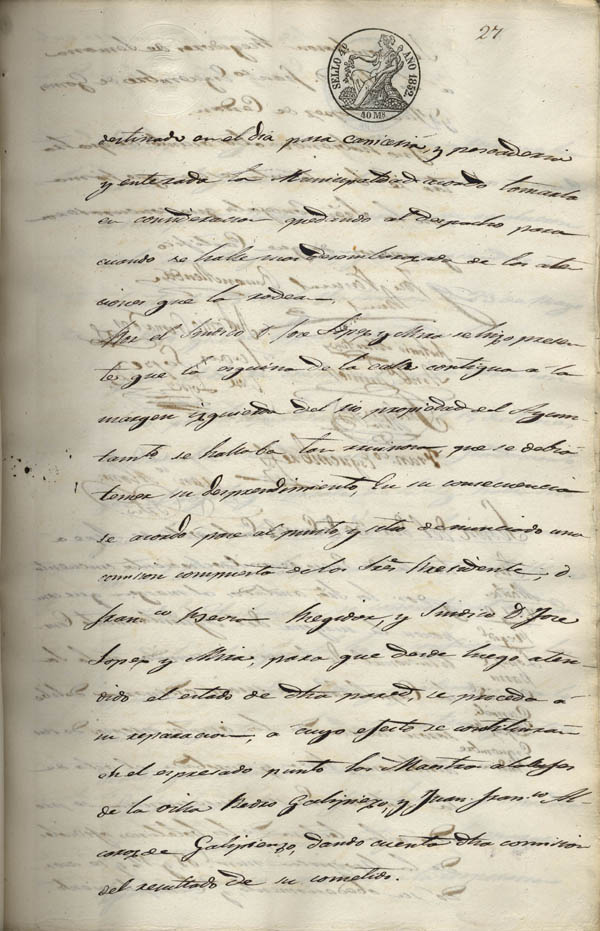 27
SELLO 4º AÑO 1852
40 Ms
destinado en el dia para carniceria y pescaderia
y enterada la Municipalidad acordó tomarlo
en consideracion quedando al despacho para
cuando se halle mas desembarazada de los aten
ciones que la rodea.
Por el Sindico D. Jose Lopez y Mira se hizo presen
te, que la esquina de la calle contigua a la
margen izquierda del rio propiedad del Ayun
tamto. se hallaba tan ruinosa que se debia
temer su desprendimiento, En su consecuencia
se acordo pase al punto y sitio denunciado una
comision compuesta de los Sres. Presidente, D.
Franco. Regidor, y Sindico D. Jose
Lopez y Mira, para que desde luego aten
dido el estado de dha pared, se proceda á
su reparacion, a cuyo efecto se constituiran
en el espresado punto los Maestros alarifes
de la villa Pedro Galipienzo, y Juan Franco. Al
de Galipienzo, dando cuenta dha comision
del resultado de su cometido.